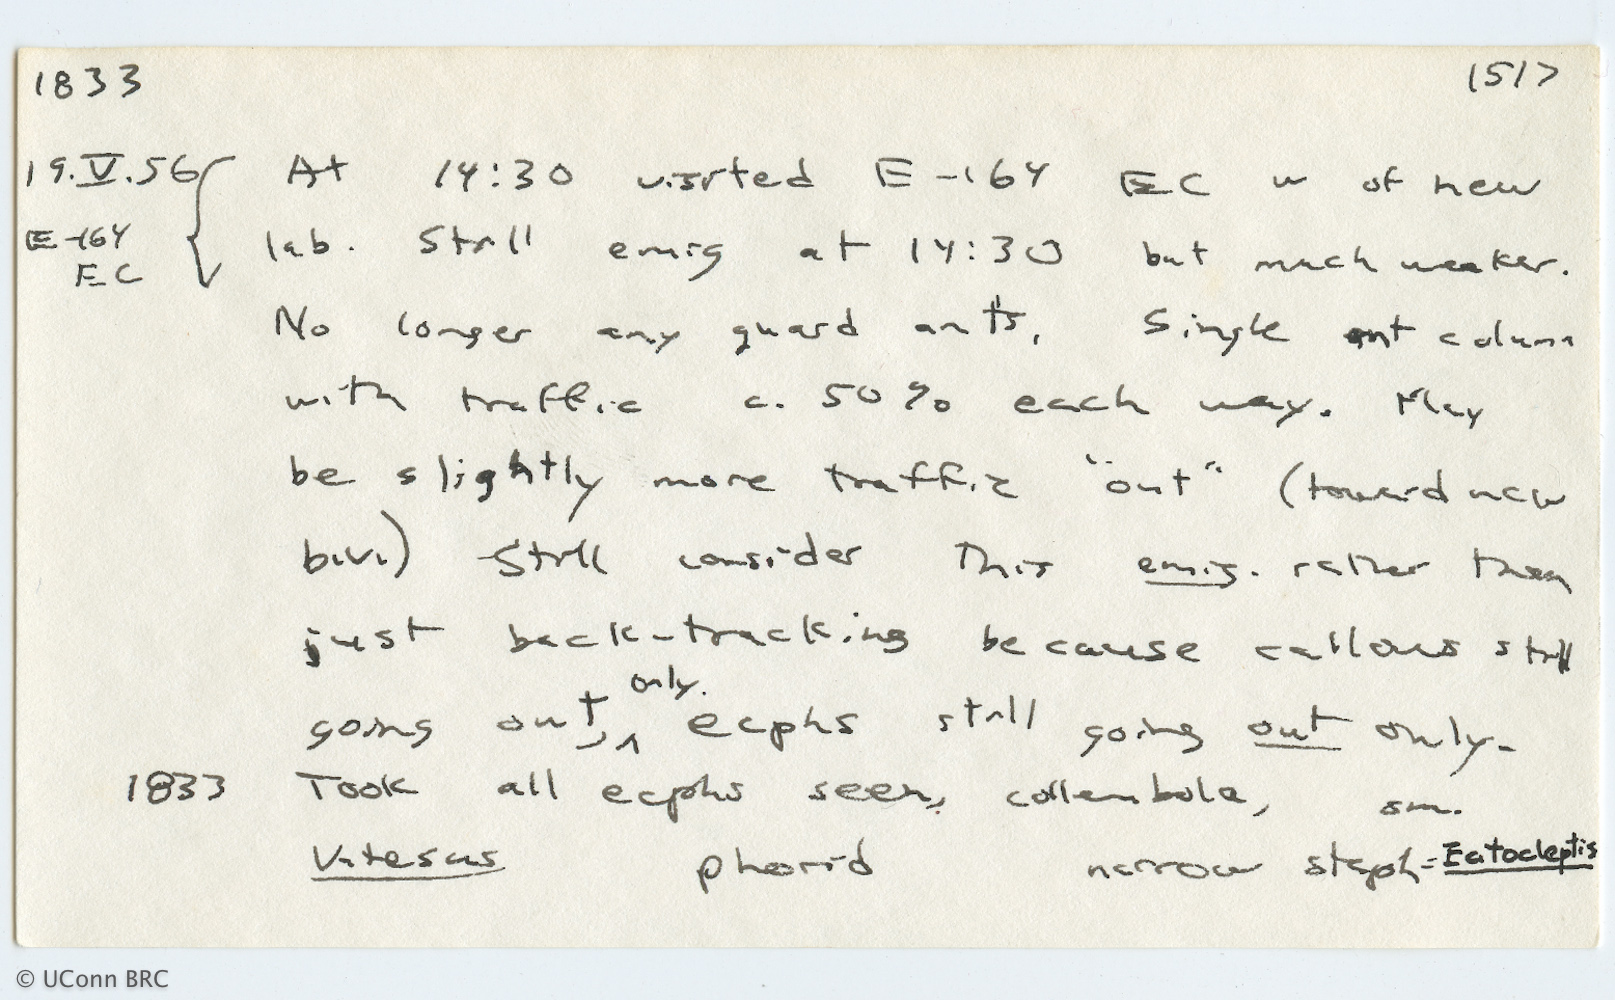 1833 1517
19.V.56 At 14:30 visited E-164 EC w of new
E-164 lab. Still emig at 14:30 but much weaker.
EC
No longer any guard ants, Single ant column
with traffic c. 50% each way. May
be slightly more traffic "out" (toward new
bivi) Still consider this emig. rather than
just back-tracking because callows still
going out, only. ecphs still going out only.
1833 Took all ecphs seen, collembola, sm.
Vatesus phorid narrow staph = Ecitocleptis
© UConn BRC